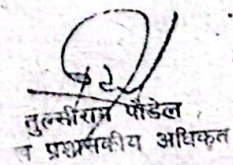 तुल्सीराम पौडेल
प्रशासकीय अधिकृत